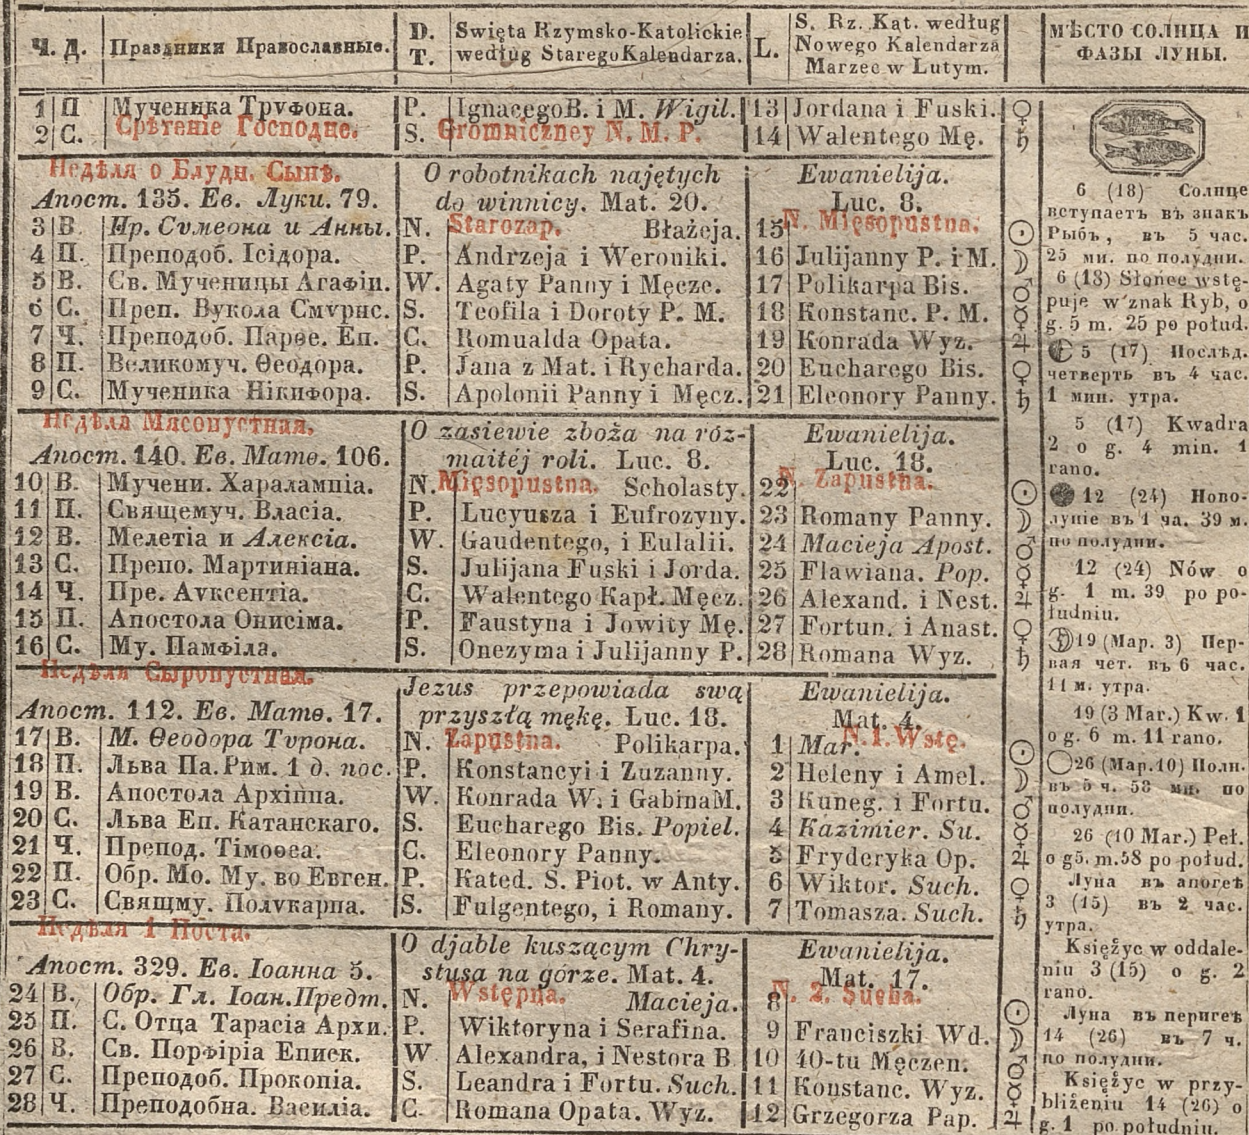 Ч. Д. Праздники Православные. D. T. Święta Rzymsko-Katolickie według Starego Kalendarza. L. S. Rz. Kat. według Nowego Kalendarza Marzec w Lutym. МѢСТО СОЛНЦА И ФАЗЫ ЛУНЫ.
1 П Мученика Трѵфона. P. Ignacego B. i M. Wigil. 13 Jordana i Fuski. ♀
2 С. Срѣтеніе Господне. S. Gromniczney N. M. P. 14 Walentego Mę. ♄
Недѣля о Блудн. Сынѣ. O robotnikach najętych Ewanielija.
Апост. 135. Ев. Луки. 79. do winnicy. Mat. 20. Luc. 8.
3 В. Пр. Сѵмеона и Анны. N. Starozap. Błażeja. 15 N. Mięsopustna. ☉
4 П. Преподоб. Ісідора. P. Andrzeja i Weroniki. 16 Julijanny P. i M. ☽
5 В. Св. Мученицы Агафіи. W. Agaty Panny i Męcze. 17 Polikarpa Bis. ♂
6 С. Преп. Вукола Смѵрнс. S. Teofila i Doroty P. M. 18 Konstanc. P. M. ☿
7 Ч. Преподоб. Парѳе. Еп. C. Romualda Opata. 19 Konrada Wyz. ♃
8 П. Великомуч. Ѳеодора. P. Jana z Mat. i Rycharda. 20 Eucharego Bis. ♀
9 С. Мученика Нікифора. S. Apolonii Panny i Męcz. 21 Eleonory Panny. ♄
Недѣля Мясопустная. O zasiewie zboża na róz- Ewanielija.
Апост. 140. Ев. Матѳ. 106. maitéj roli. Luc. 8. Luc. 18.
10 В. Мучени. Харалампіа. N. Mięsopustna. Scholasty. 22 N. Zapustna. ☉
11 П. Священмуч. Власіа. P. Lucyusza i Eufrozyny. 23 Romany Panny. ☽
12 В. Мелетіа и Алексіа. W. Gaudentego, i Eulalii. 24 Macieja Apost. ♂
13 С. Препо. Мартиніана. S. Julijana Fuski i Jorda. 25 Flawiana. Pop. ☿
14 Ч. Пре. Аѵксентіа. C. Walentego Kapł. Męcz. 26 Alexand. i Nest. ♃
15 П. Апостола Онисіма. P. Faustyna i Jowity Mę. 27 Fortun. i Anast. ♀
16 С. Му. Памфіла. S. Onezyma i Julijanny P. 28 Romana Wyz. ♄
Недѣля Сыропустная. Jezus przepowiada swą Ewanielija.
Апост. 112. Ев. Матѳ. 17. przyszłą mękę. Luc. 18. Mat. 4.
17 В. М. Ѳеодора Тѵрона. N. Zapustna. Polikarpa. 1 Mar. N. 1. Wstę. ☉
18 П. Льва Па. Рим. 1 д. пос. P. Konstancyi i Zuzanny. 2 Heleny i Amel. ☽
19 В. Апостола Архіппа. W. Konrada W. i Gabina M. 3 Kuneg. i Fortu. ♂
20 С. Льва Еп. Катанскаго. S. Eucharego Bis. Popiel. 4 Kazimier. Su. ☿
21 Ч. Препод. Тімоѳеа. C. Eleonory Panny. 5 Fryderyka Op. ♃
22 П. Обр. Мо. Му. во Евген. P. Kated. S. Piot. w Anty. 6 Wiktor. Such. ♀
23 С. Свящму. Полѵкарпа. S. Fulgentego, i Romany. 7 Tomasza. Such. ♄
Недѣля 1 Поста. O djable kuszącym Chry- Ewanielija.
Апост. 329. Ев. Іоанна 5. stusa na górze. Mat. 4. Mat. 17.
24 В. Обр. Гл. Іоан. Предт. N. Wstępna. Macieja. 8 N. 2. Sucha. ☉
25 П. С. Отца Тарасіа Архи. P. Wiktoryna i Serafina. 9 Franciszki Wd. ☽
26 В. Св. Порфіріа Еписк. W Alexandra, i Nestora B 10 40-tu Męczen. ♂
27 С. Преподоб. Прокопіа. S. Leandra i Fortu. Such. 11 Konstanc. Wyz. ☿
28 Ч. Преподобна. Василіа. C. Romana Opata. Wyz. 12 Grzegorza Pap. ♃
6 (18) Солнце
вступаетъ въ знакъ
Рыбъ, въ 5 час.
25 ми. по полудни.
6 (18) Słońce wstę-
puje w znak Ryb, o
g. 5 m. 25 po połud.
5 (17) Послѣд.
четверть въ 4 час.
1 мин. утра.
5 (17) Kwadra
2 o g. 4 min. 1
rano.
12 (24) Ново-
луніе въ 1 ча. 39 м.
по полудни.
12 (24) Nów o
g. 1 m. 39 po po-
łudniu.
19 (Мар. 3) Пер-
вая чет. въ 6 час.
11 м. утра.
19 (3 Mar.) Kw. 1
o g. 6 m. 11 rano.
26 (Мар. 10) Полн.
въ 5 ч. 58 ми. по
полудни.
26 (10 Mar.) Peł.
o g5. m.58 po połud.
Луна въ апогеѣ
3 (15) въ 2 час.
утра.
Księżyc w oddale-
niu 3 (15) o g. 2
rano.
Луна въ перигеѣ
14 (26) въ 7 ч.
по полудни.
Księżyc w przy-
bliżeniu 14 (26) o
g. 1 po południu.